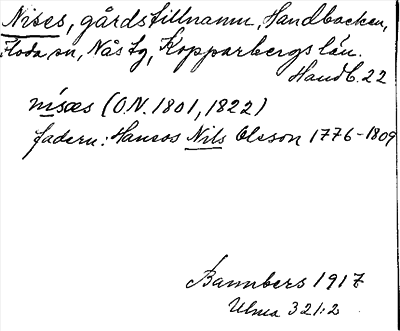 Nises, gårdstillnamn, Handbacken,
Floda sn, Nås tg, Kopparbergs län.
Handb. 22
nisæs (O.N. 1801, 1822)
fadern: Hansos Nils Olsson 1776-1809
Bannbers 1917
Ulma 321:2